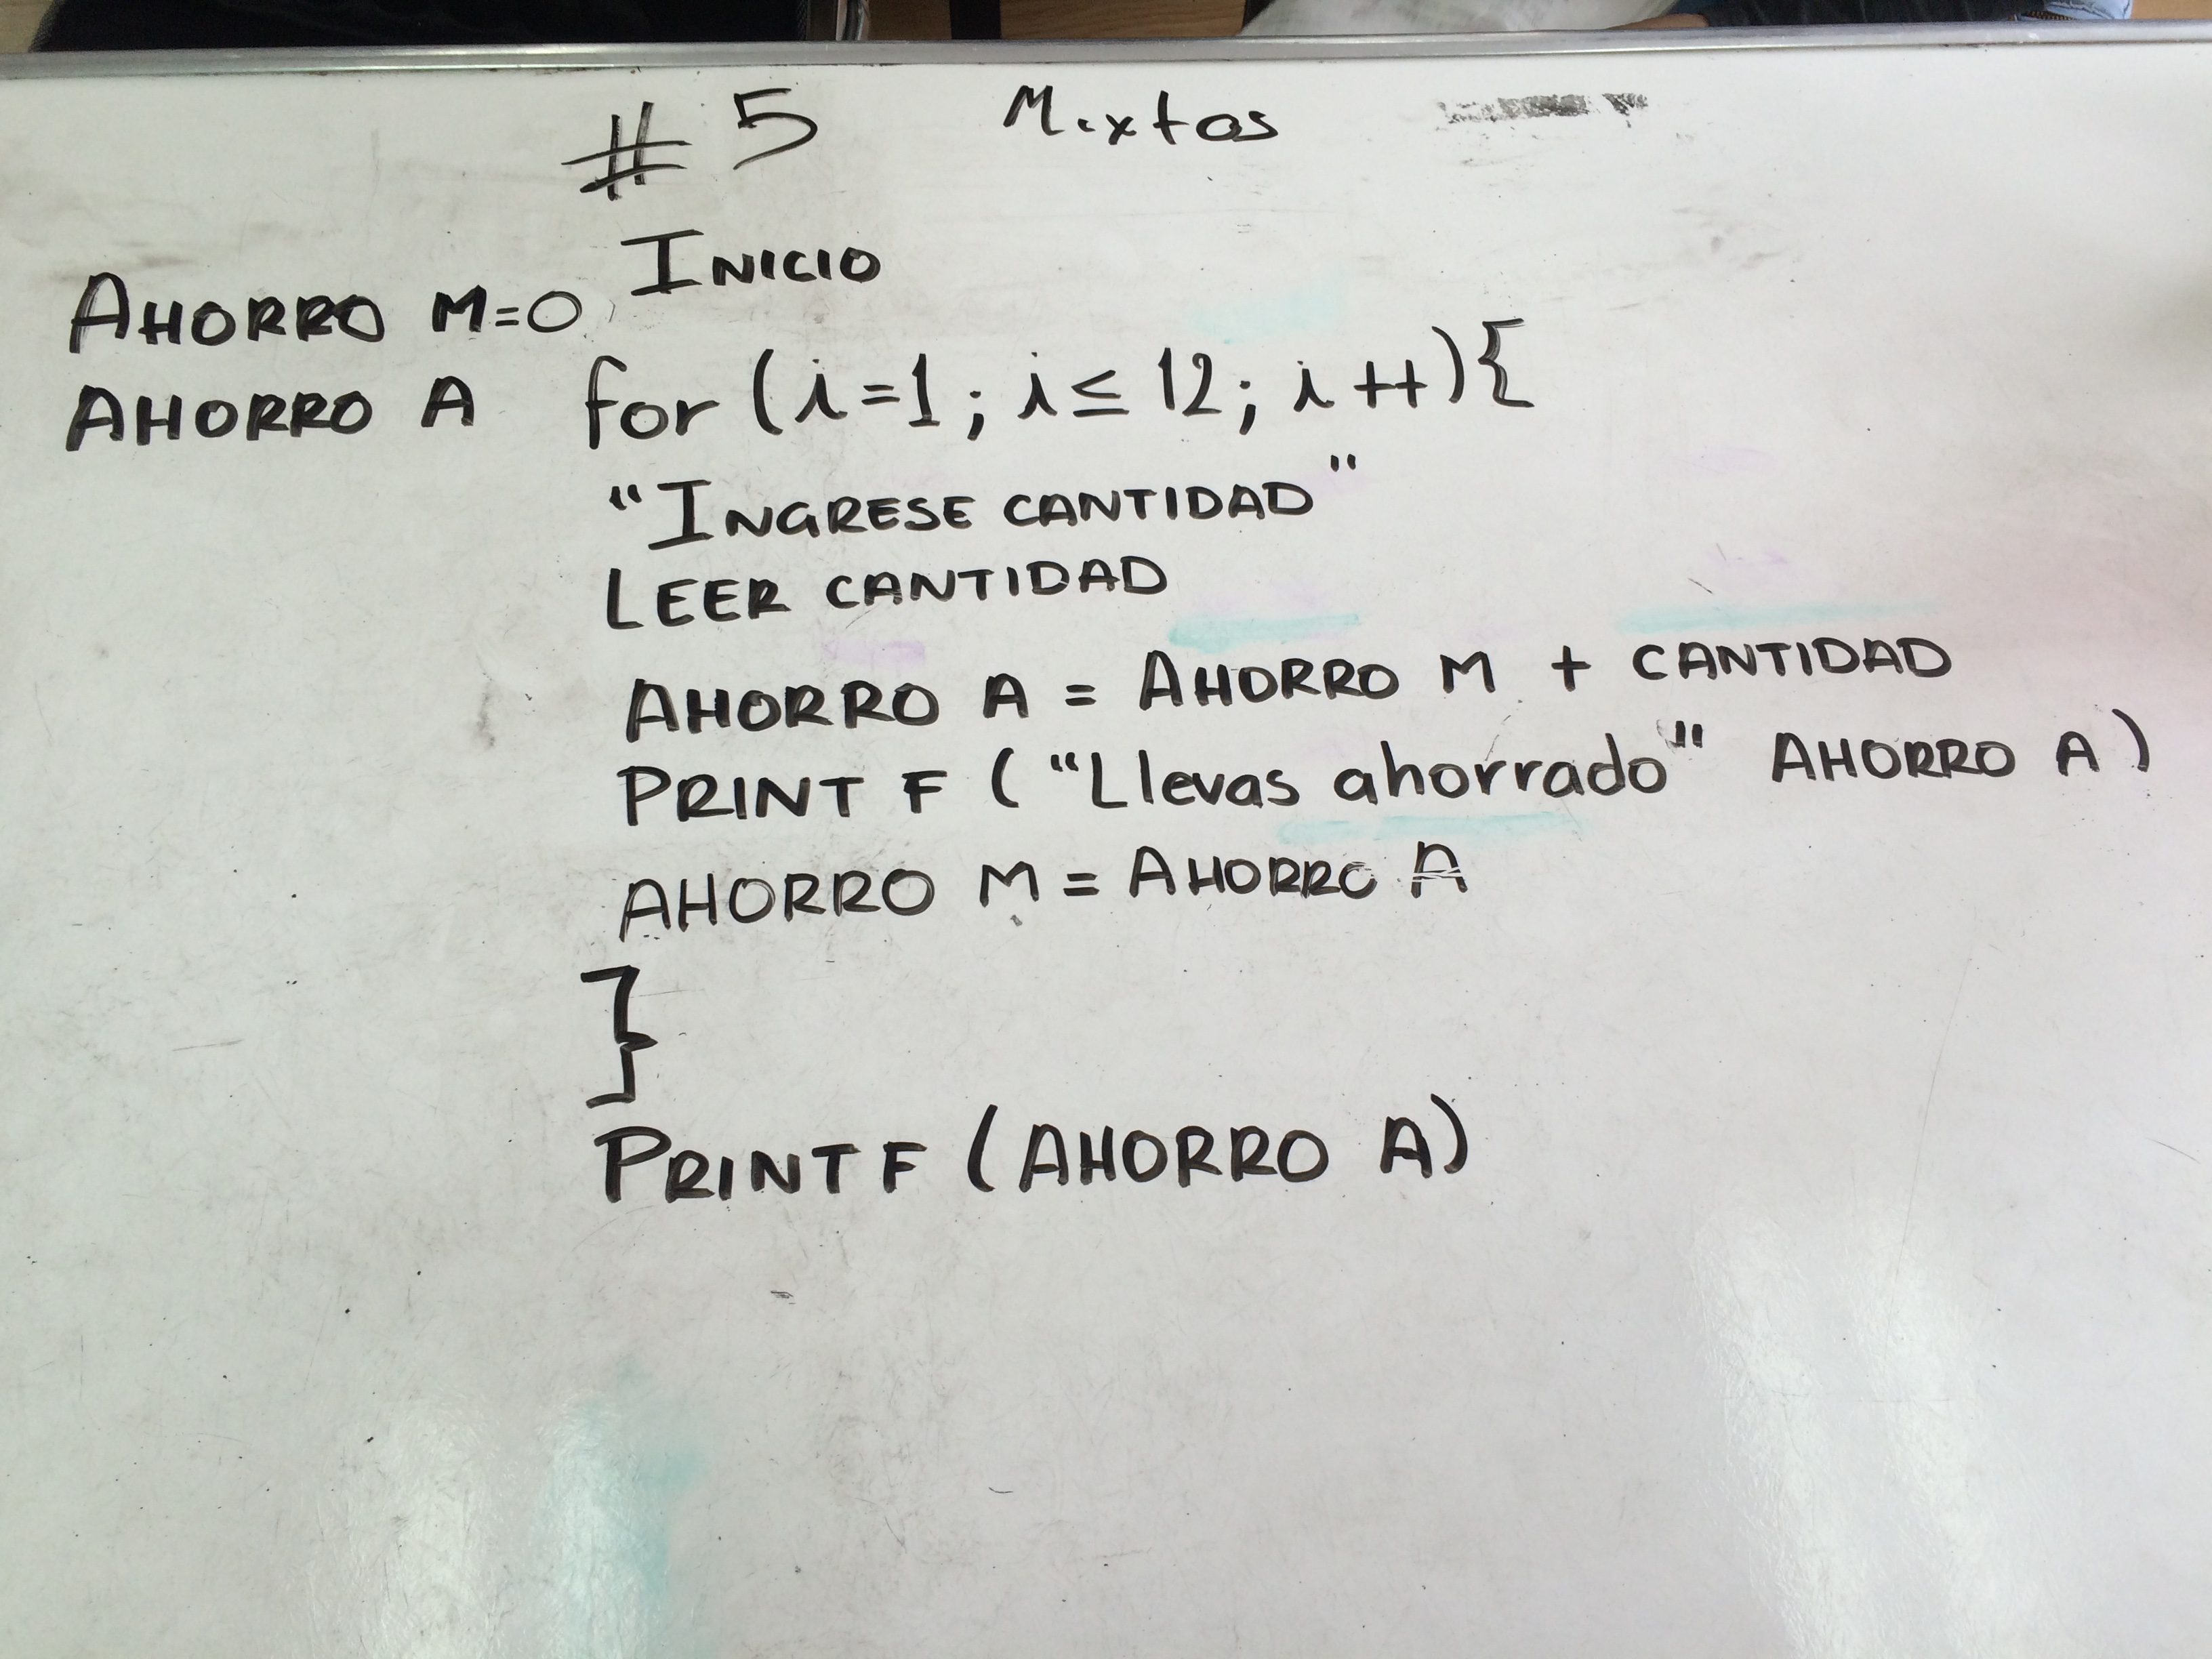 # 5 Mixtos
INICIO
AHORRO M=0
AHORRO A for (i=1; i≤12; i++){
"INGRESE CANTIDAD"
LEER CANTIDAD
AHORRO A = AHORRO M + CANTIDAD
PRINT F ("Llevas ahorrado" AHORRO A)
AHORRO M = AHORRO A
}
PRINTF (AHORRO A)